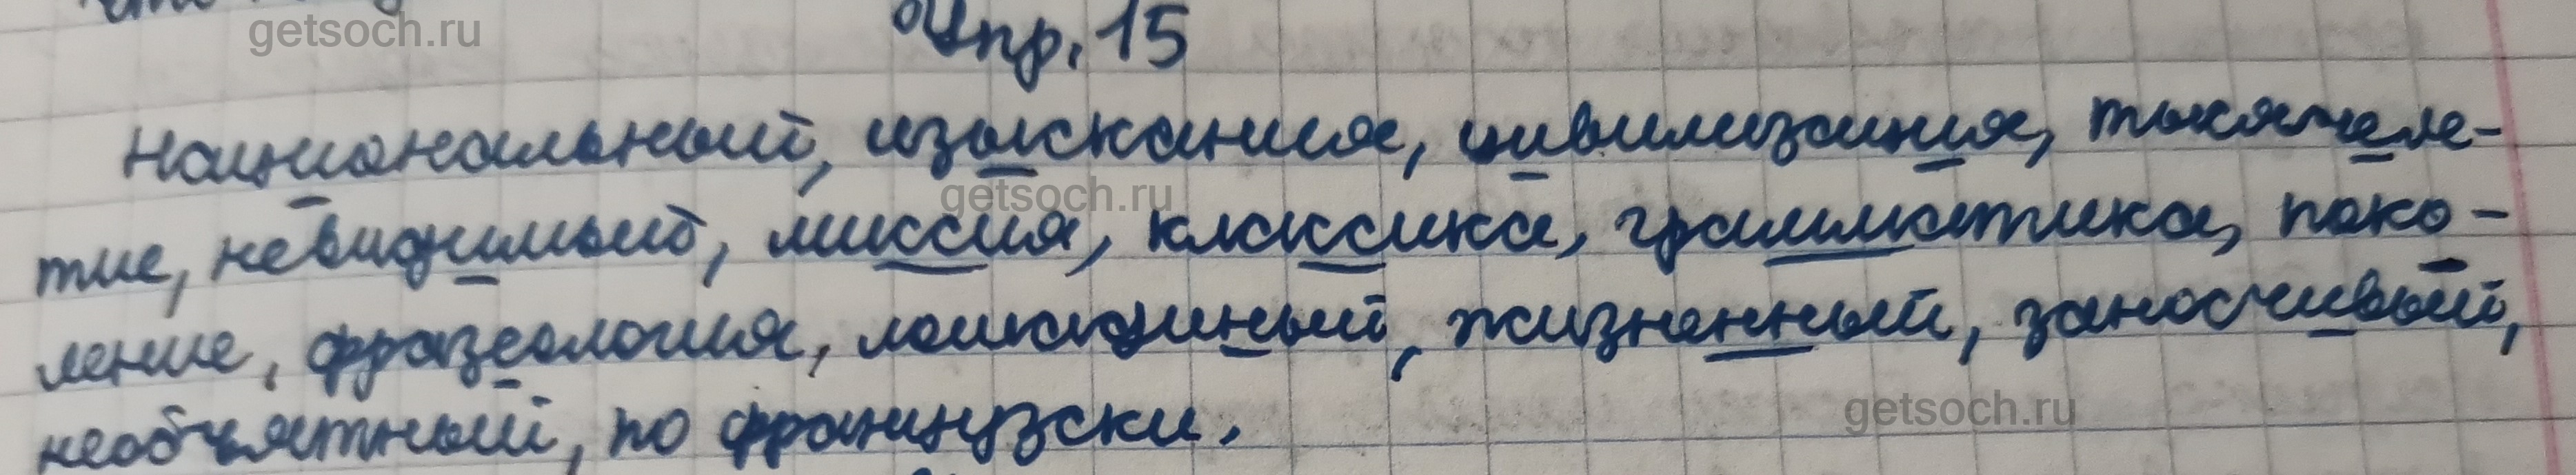 getsoch.ru
Упр. 15
Национальный, изыскания, цивилизация, тысячеле-
getsoch.ru
тие, невидимый, миссия, классика, грамматика, поко-
ление, фразеология, лошадиный, жизненный, заносчивый,
getsoch.ru
необъятный, по французски.